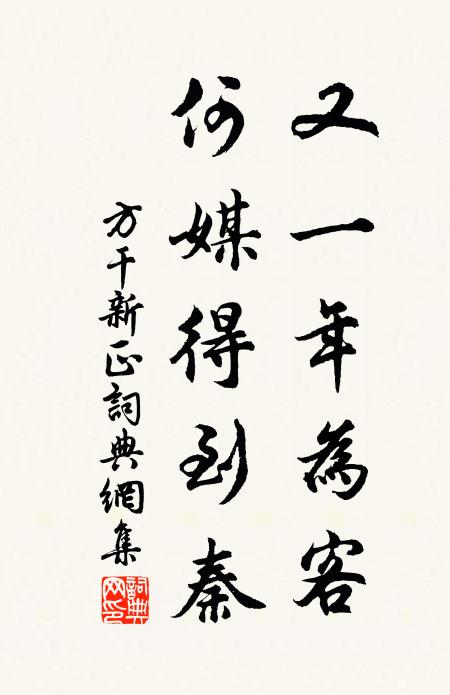 又一年為客
何媒得到秦
方干新正詞典網集
詞典網印